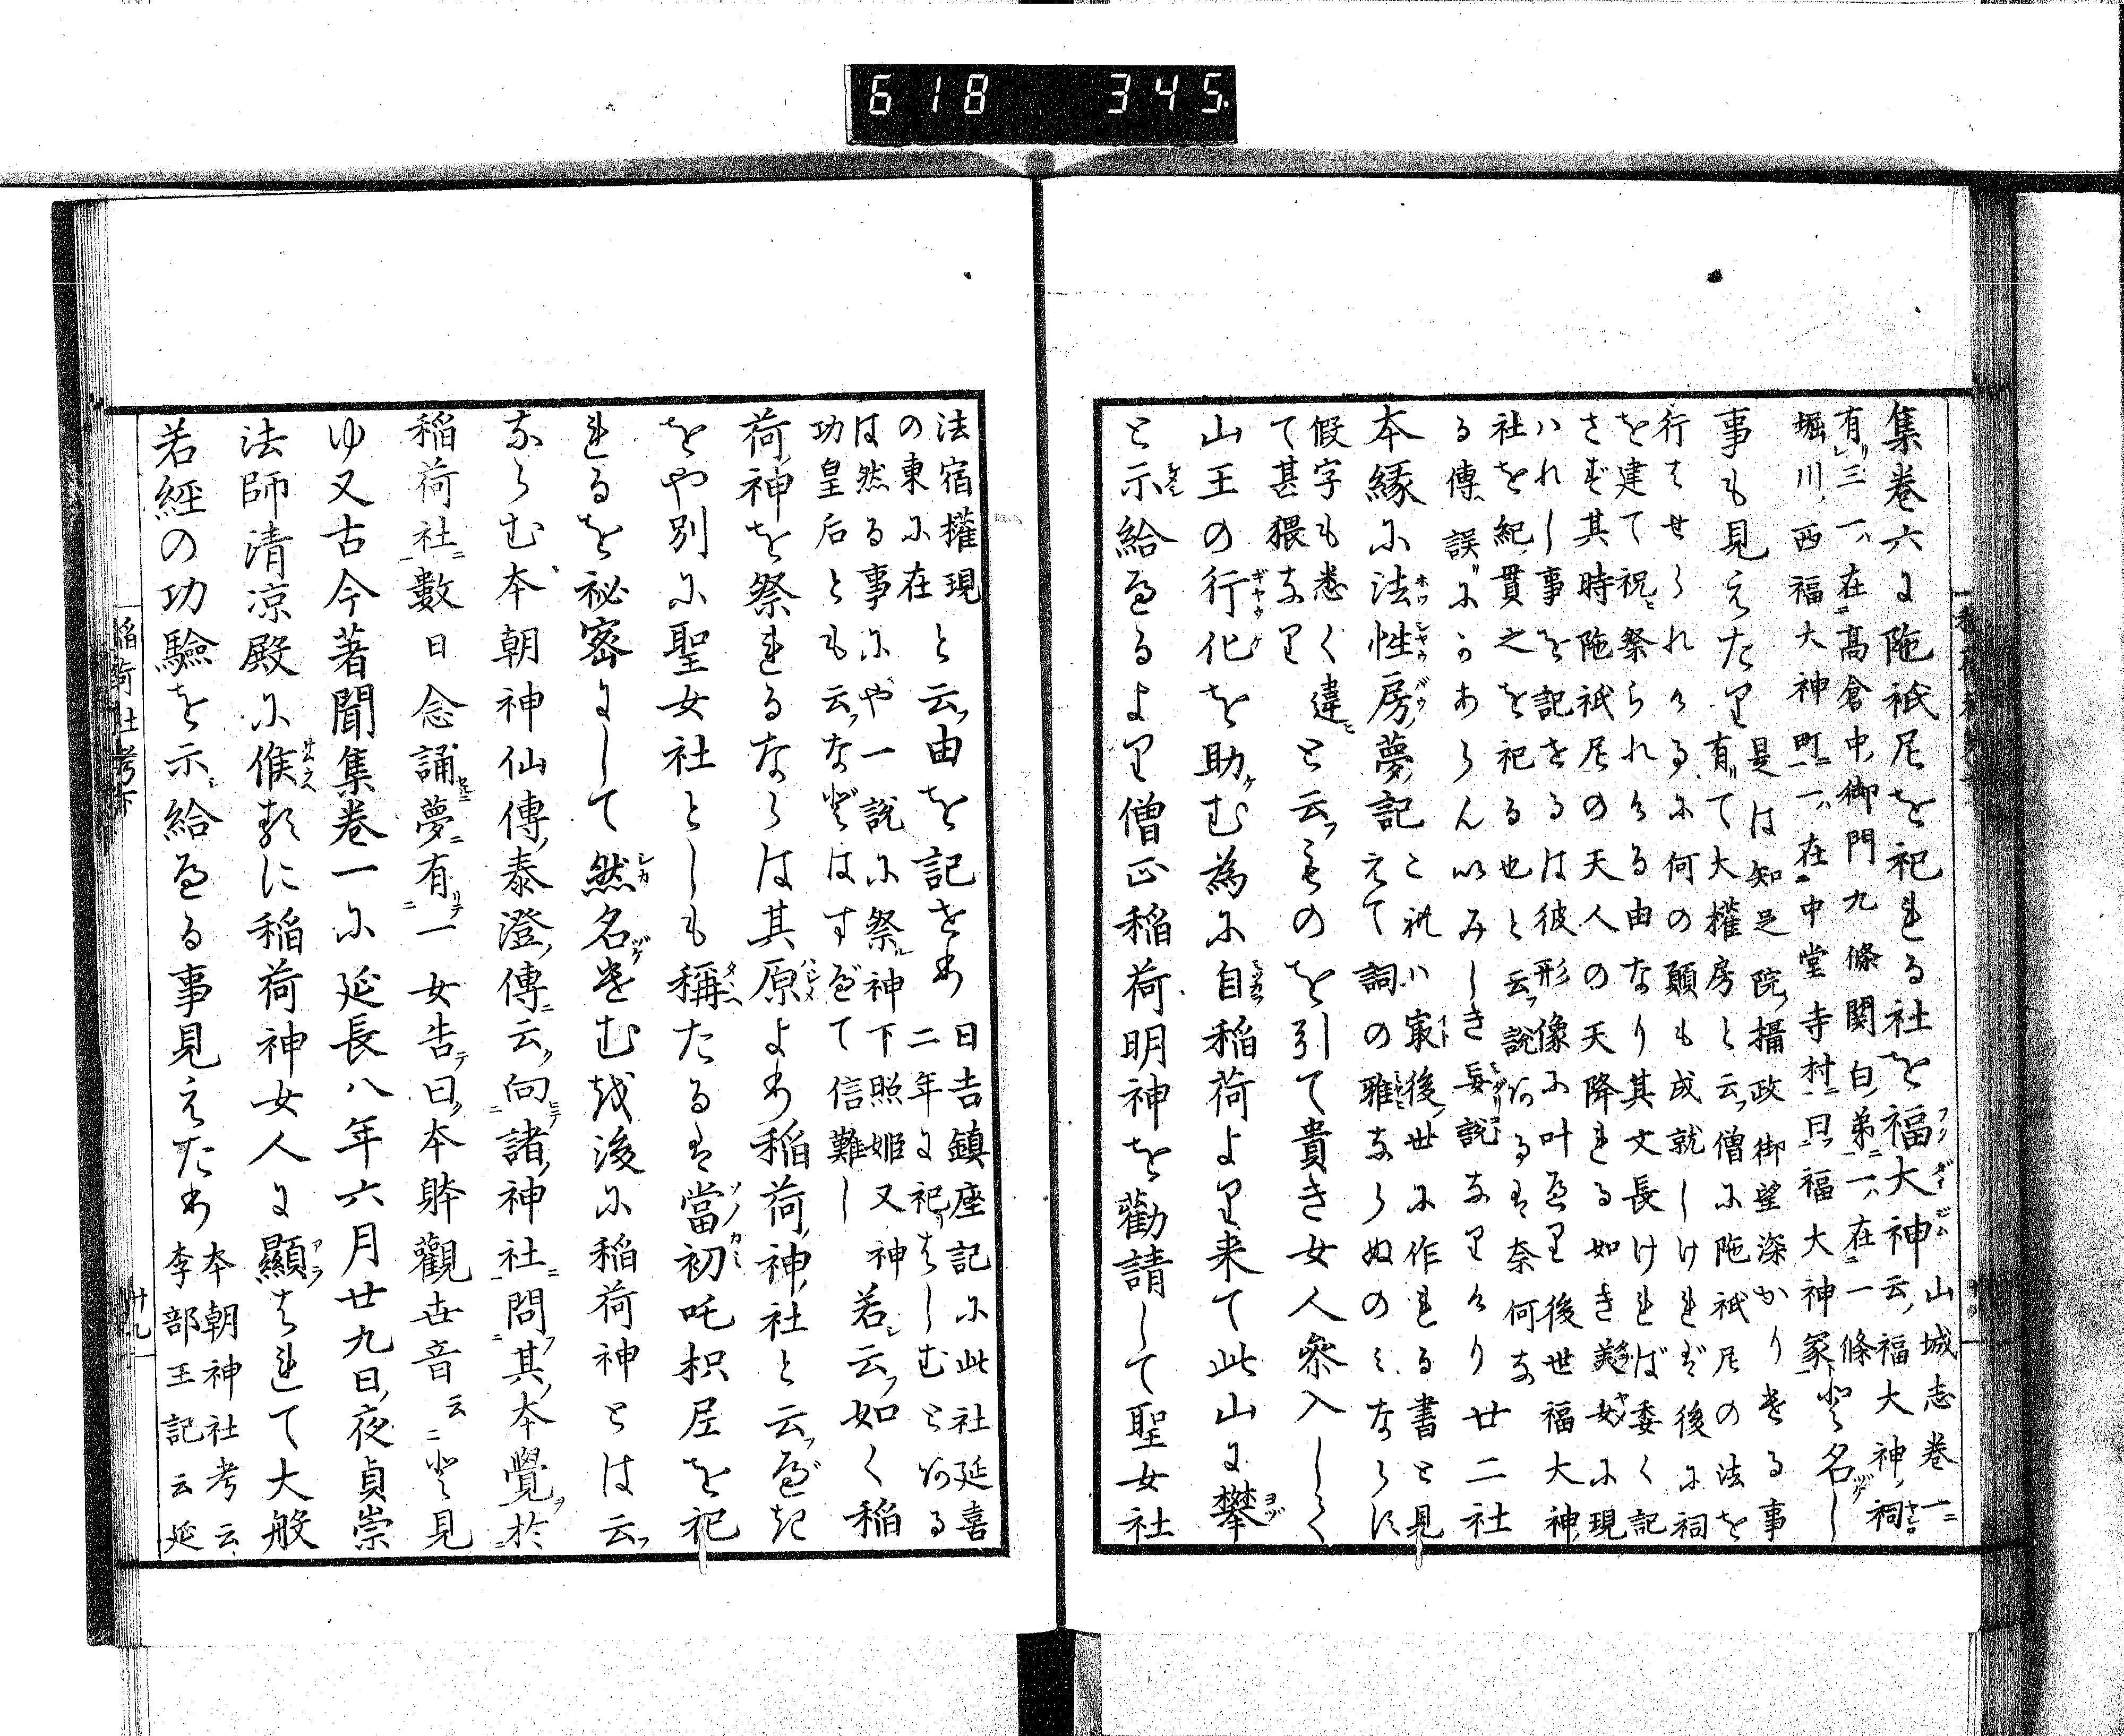 618 345
集卷六に陁祇尼を祀れる社を福大神
山城志卷一ニ
云福大神祠
有三一ハ在高倉中御門九條関白第一ハ在一條
堀川西福大神町一ハ在中堂寺村曰福大神冢
など名し
事も見えたり
是は知足院攝政御望深かりける事
有て大權房と云僧に陁祇尼の法を
行はせられけるに何の願も成就しければ後に祠
を建て祝祭られける由なり其文長ければ委く記
さず其時陁祇尼の天人の天降れる如き美女に現
ハれし事を記せるは彼形像に叶へり後世福大神
社を紀貫之を祀る也と云説あるは奈何なる
る傳誤にかあらんいみしき妄説なりけり
廿二社
本縁に法性房夢記とて詞の雅ならぬのミならに
こハ寂後世に作れる書と見
假字も悉く違と云ものを引て貴き女人參入して
て甚猥なり
山王の行化を助む為に自稲荷より来て此山に攀
と示給へるより僧正稲荷明神を勸請して聖女社
法宿權現と云由を記せり
日吉鎮座記に此社延喜
の東に在
二年に祀はしむとある
は然る事にや一説に祭神下照姫又神
功皇后とも云などはすべて信難し
若云如く稲
荷神を祭れるならは其原より稲荷神社と云べき
をや別に聖女社としも稱たるは當初吒枳尼を祀
れるを秘密にして然名けむを後に稲荷神とは云
ならむ本朝神仙傳泰澄傳云向諸神社問其本覺於
稲荷社數日念誦夢有一女告曰本躰觀世音云ニなど見
ゆ又古今著聞集卷一に延長八年六月廿九日夜貞崇
法師清凉殿に候けるに稲荷神女人に顯はれて大般
若經の功驗を示給へる事見えたり
本朝神社考云
李部王記云延
稲荷社考下
十九